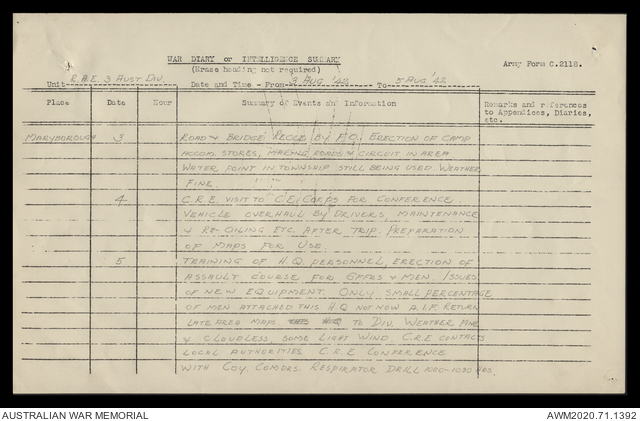 WAR DIARY or INTELLIGENCE SUMMARY
(Erase heading not required)
Army Form C.2118.
Unit R.A.E. 3 AUST. DIV. Date and Time - From 3 AUG '42 To 5 AUG '42
Place Date Hour Summary of Events and Information Remarks and references
to Appendices, Diaries,
etc.
MARYBOROUGH 3 ROAD & BRIDGE RECCE BY F.O. ERECTION OF CAMP
ACCOM. STORES, MAKING ROADS & CIRCUIT IN AREA
WATER POINT IN TOWNSHIP STILL BEING USED. WEATHER
FINE.
4 C.R.E. VISIT TO C.E. CORPS FOR CONFERENCE
VEHICLE OVERHAUL BY DRIVERS, MAINTENANCE
& RE-OILING ETC. AFTER TRIP. PREPARATION
OF MAPS FOR USE
5 TRAINING OF H.Q. PERSONNEL, ERECTION OF
ASSAULT COURSE FOR OFFRS & MEN. ISSUES
OF NEW EQUIPMENT. ONLY SMALL PERCENTAGE
OF MEN ATTACHED THIS H.Q NOT NOW A.I.F. RETURN
LATE AREA MAPS TO DIV. WEATHER FINE
& CLOUDLESS, SOME LIGHT WIND. C.R.E CONTACTS
LOCAL AUTHORITIES. C.R.E CONFERENCE
WITH COY. COMDRS. RESPIRATOR DRILL 1000-1030 HRS.
AUSTRALIAN WAR MEMORIAL
AWM2020.71.1392